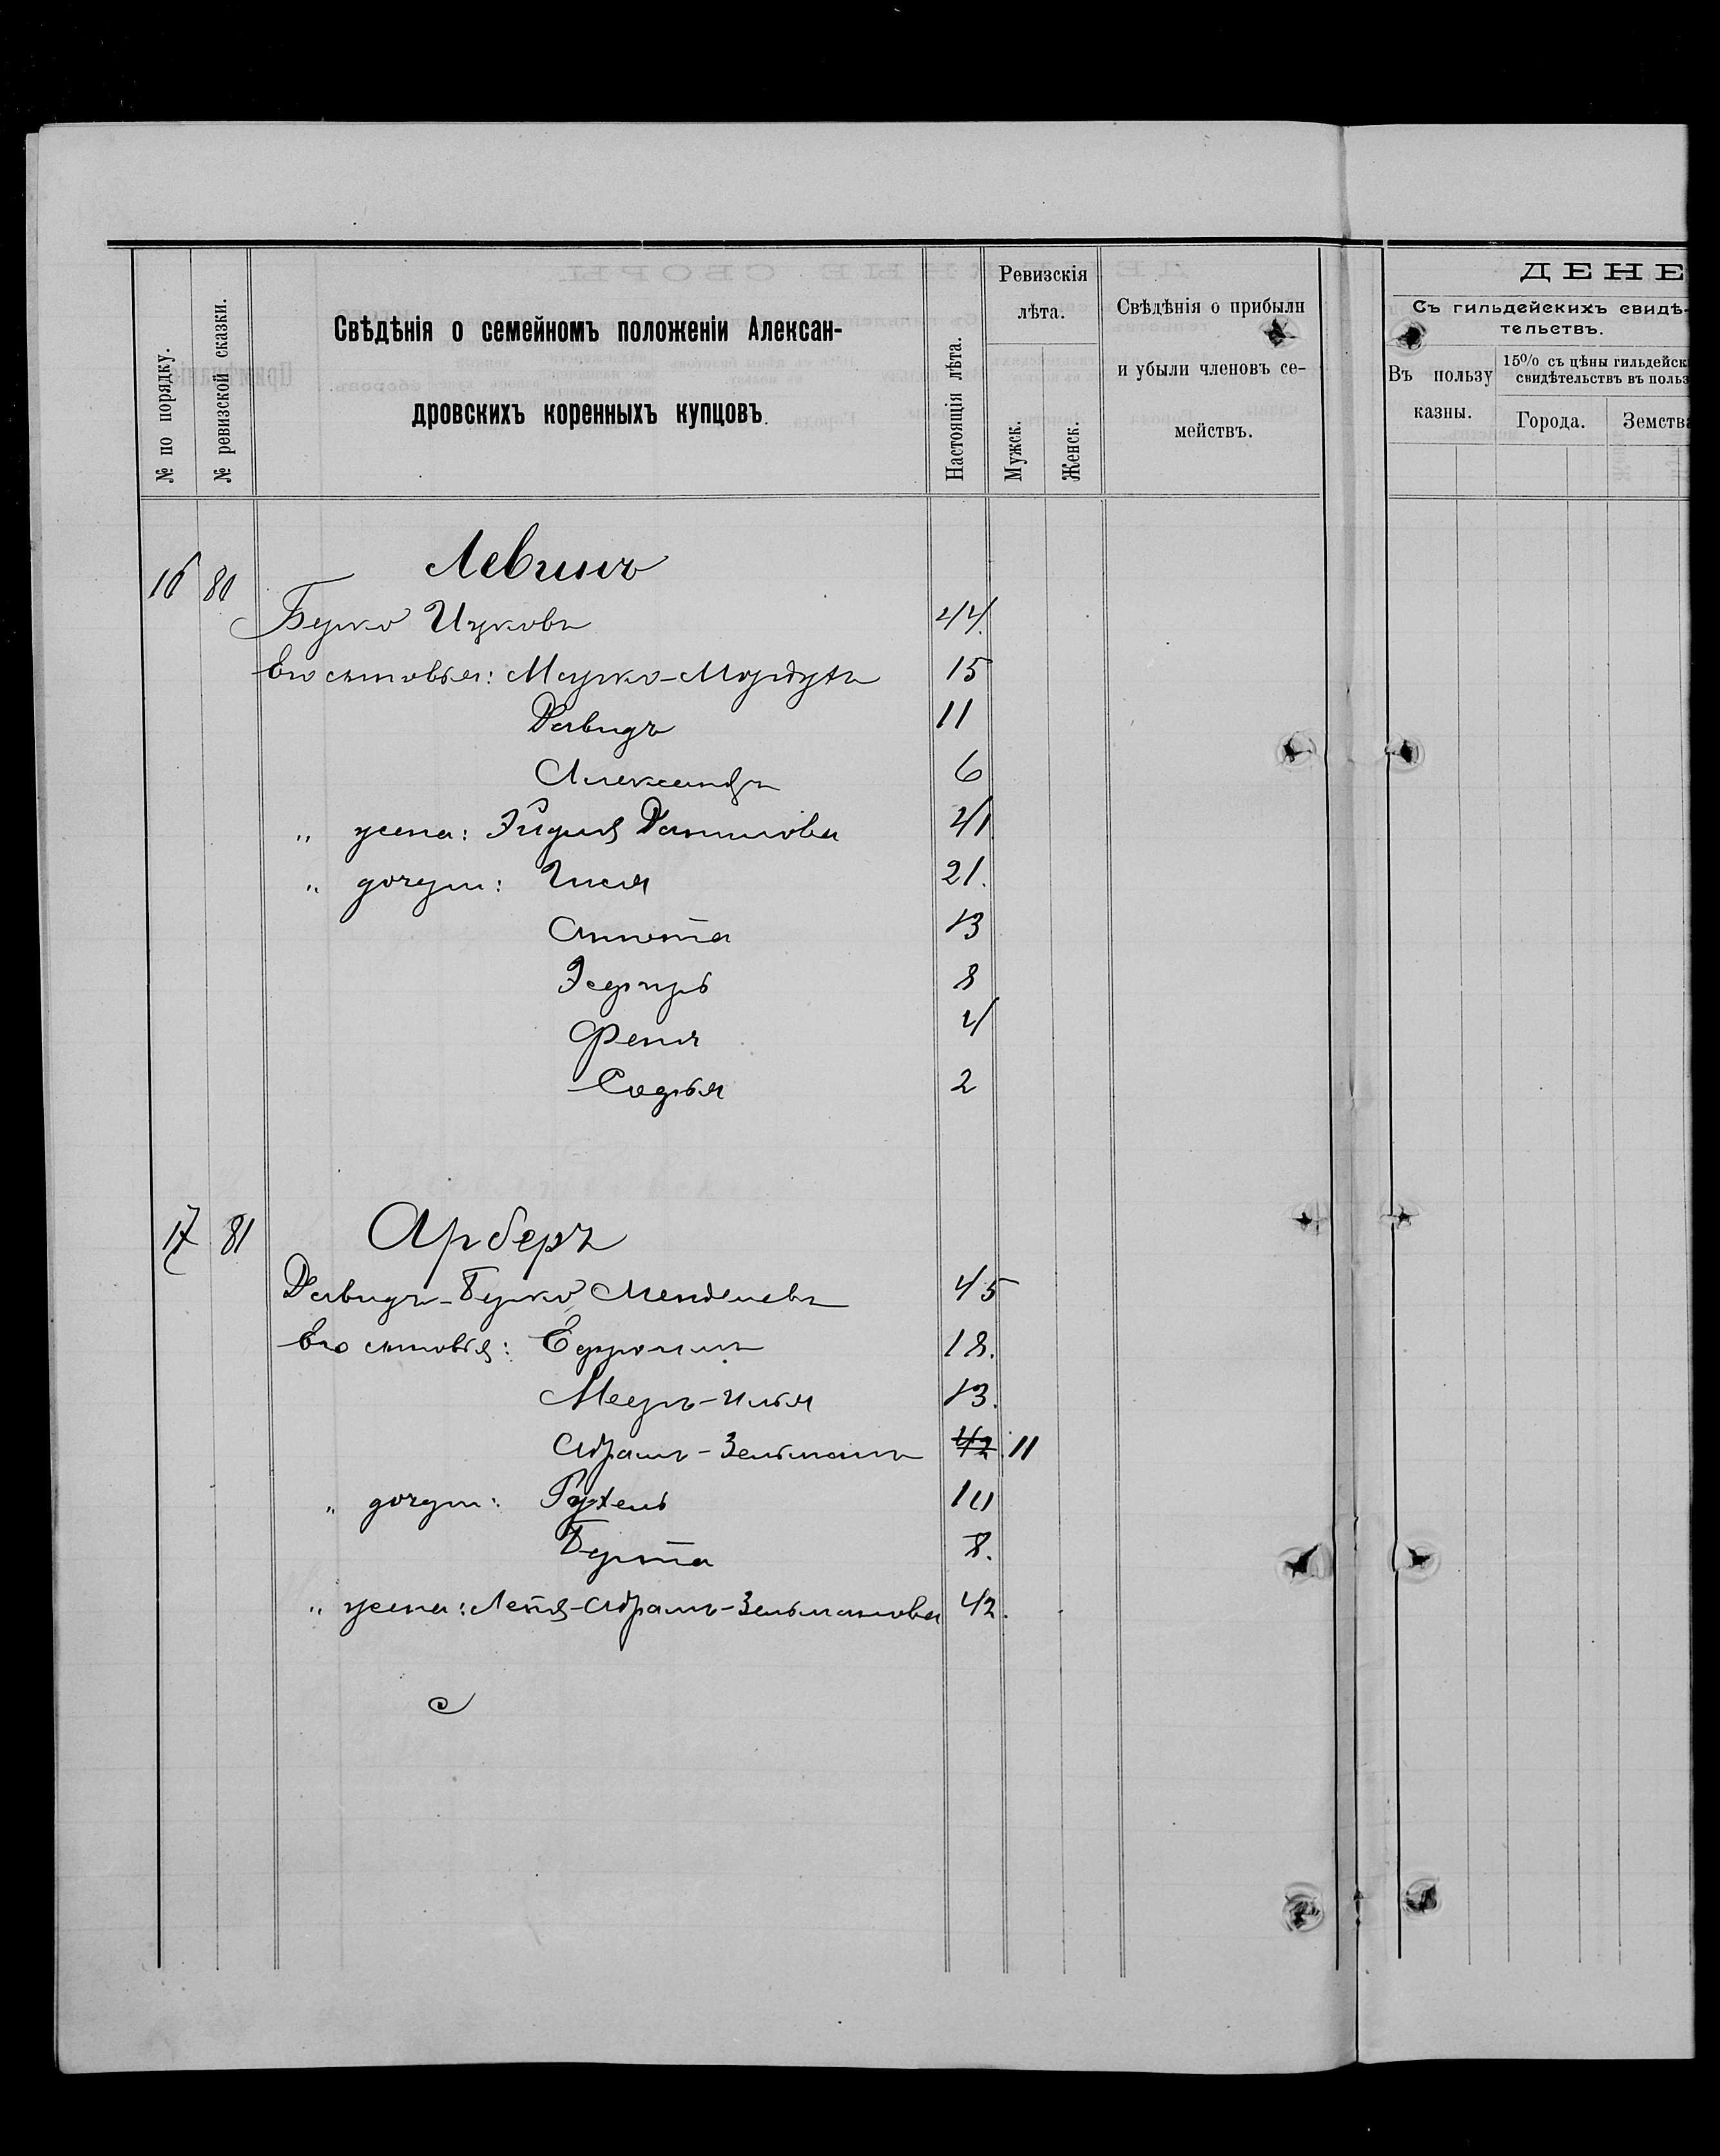 № по порядку.
№ ревизской сказки.
Свѣдѣнія о семейномъ положеніи Алексан-
дровскихъ коренныхъ купцовъ.
Настоящія лѣта.
Ревизскія
лѣта.
Мужск.
Женск.
Свѣдѣнія о прибыли
и убыли членовъ се-
мействъ.
ДЕНЕ
Съ гильдейскихъ свидѣ-
тельствъ.
Въ пользу
казны.
15% съ цѣны гильдейск
свидѣтельствъ въ польз
Города.
Земства
16 80 Левинъ
Берко Ицковъ 44.
Его сыновья: Марко-Мордухъ 15
Давидъ 11
Александръ 6
„ жена: Данилова 41
„ дочери: Гися 21.
Аннета 13
Эсфирь 8
Феня 4
Софья 2
17 81 Арберъ
Давидъ-Берко Менделевъ 45
Его сыновья: Ефроимъ 18.
Мееръ-Илья 13.
Абрамъ-Зельманъ 42 11
„ дочери: Рухель 10
Берта 8.
„ жена: Абрамъ-Зельманова 42.